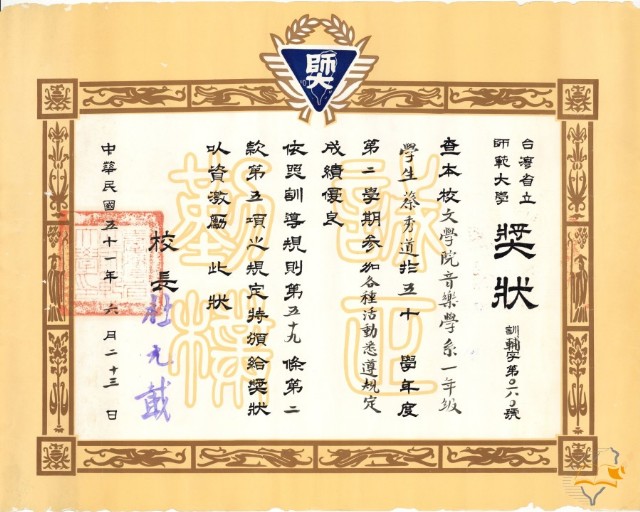 師大
台灣省立
師範大學
獎狀
訓輔字第0二八0號
查本校文學院音樂學系一年級
學生蔡秀道於五十學年度
第二學期參加各種活動悉遵規定
成績優良
依照訓導規則第五十九條第二
款第五項之規定特頒給獎狀
以資激勵此狀
校長
杜元載
中華民國五十一年六月二十三日
誠正
勤樸